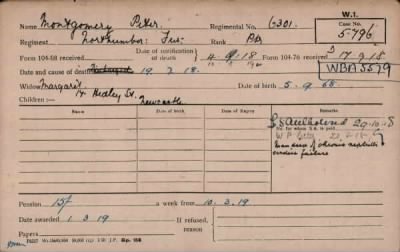 W.1.
Name Montgomery Peter. Regimental No. G301. 5-796
Regiment Northumber: Fus: Rank Pte
Form 104-88 received Date of notification of death 4.9.18 Form 104-76 received D 17.9.18
WBA 5579
Date and cause of death 19.2.18.
Widow Margaret Date of birth 5.9.68.
14 Hedley St.
Children:— Newcastle
Name. Date of Birth. Date of Expiry Remarks.
20-10-8
No. for whom S.A. is paid
Man died of chronic nephritis
cardiac failure
Pension 15/- a week from 10.3.19
Date awarded 1.3.19 If refused, reason
Papers
Gp. 158